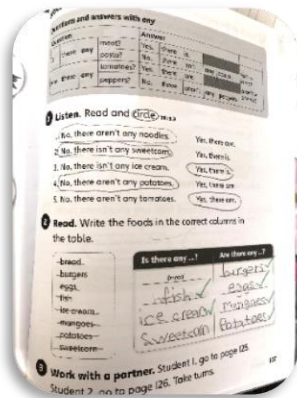 Questions and answers with any
Question
Answer
there any
meat?
pasta?
tomatoes?
peppers?
Yes, there is.
No, there isn't
Yes, there
No, there aren't any
1 Listen. Read and circle.
1. No, there aren't any noodles. Yes, there are.
2. No, there isn't any sweetcorn. Yes, there is.
3. No, there isn't any ice cream. Yes, there is.
4. No, there aren't any potatoes. Yes, there are.
5. No, there aren't any tomatoes. Yes, there are.
2 Read. Write the foods in the correct columns in
the table.
bread
burgers
eggs
fish
ice cream
mangoes
potatoes
sweetcorn
Is there any ...? Are there any ...?
bread burgers
fish eggs
ice cream mangoes
sweetcorn Potatoes
3 Work with a partner. Student 1, go to page 125.
Student 2, go to page 126. Take turns.